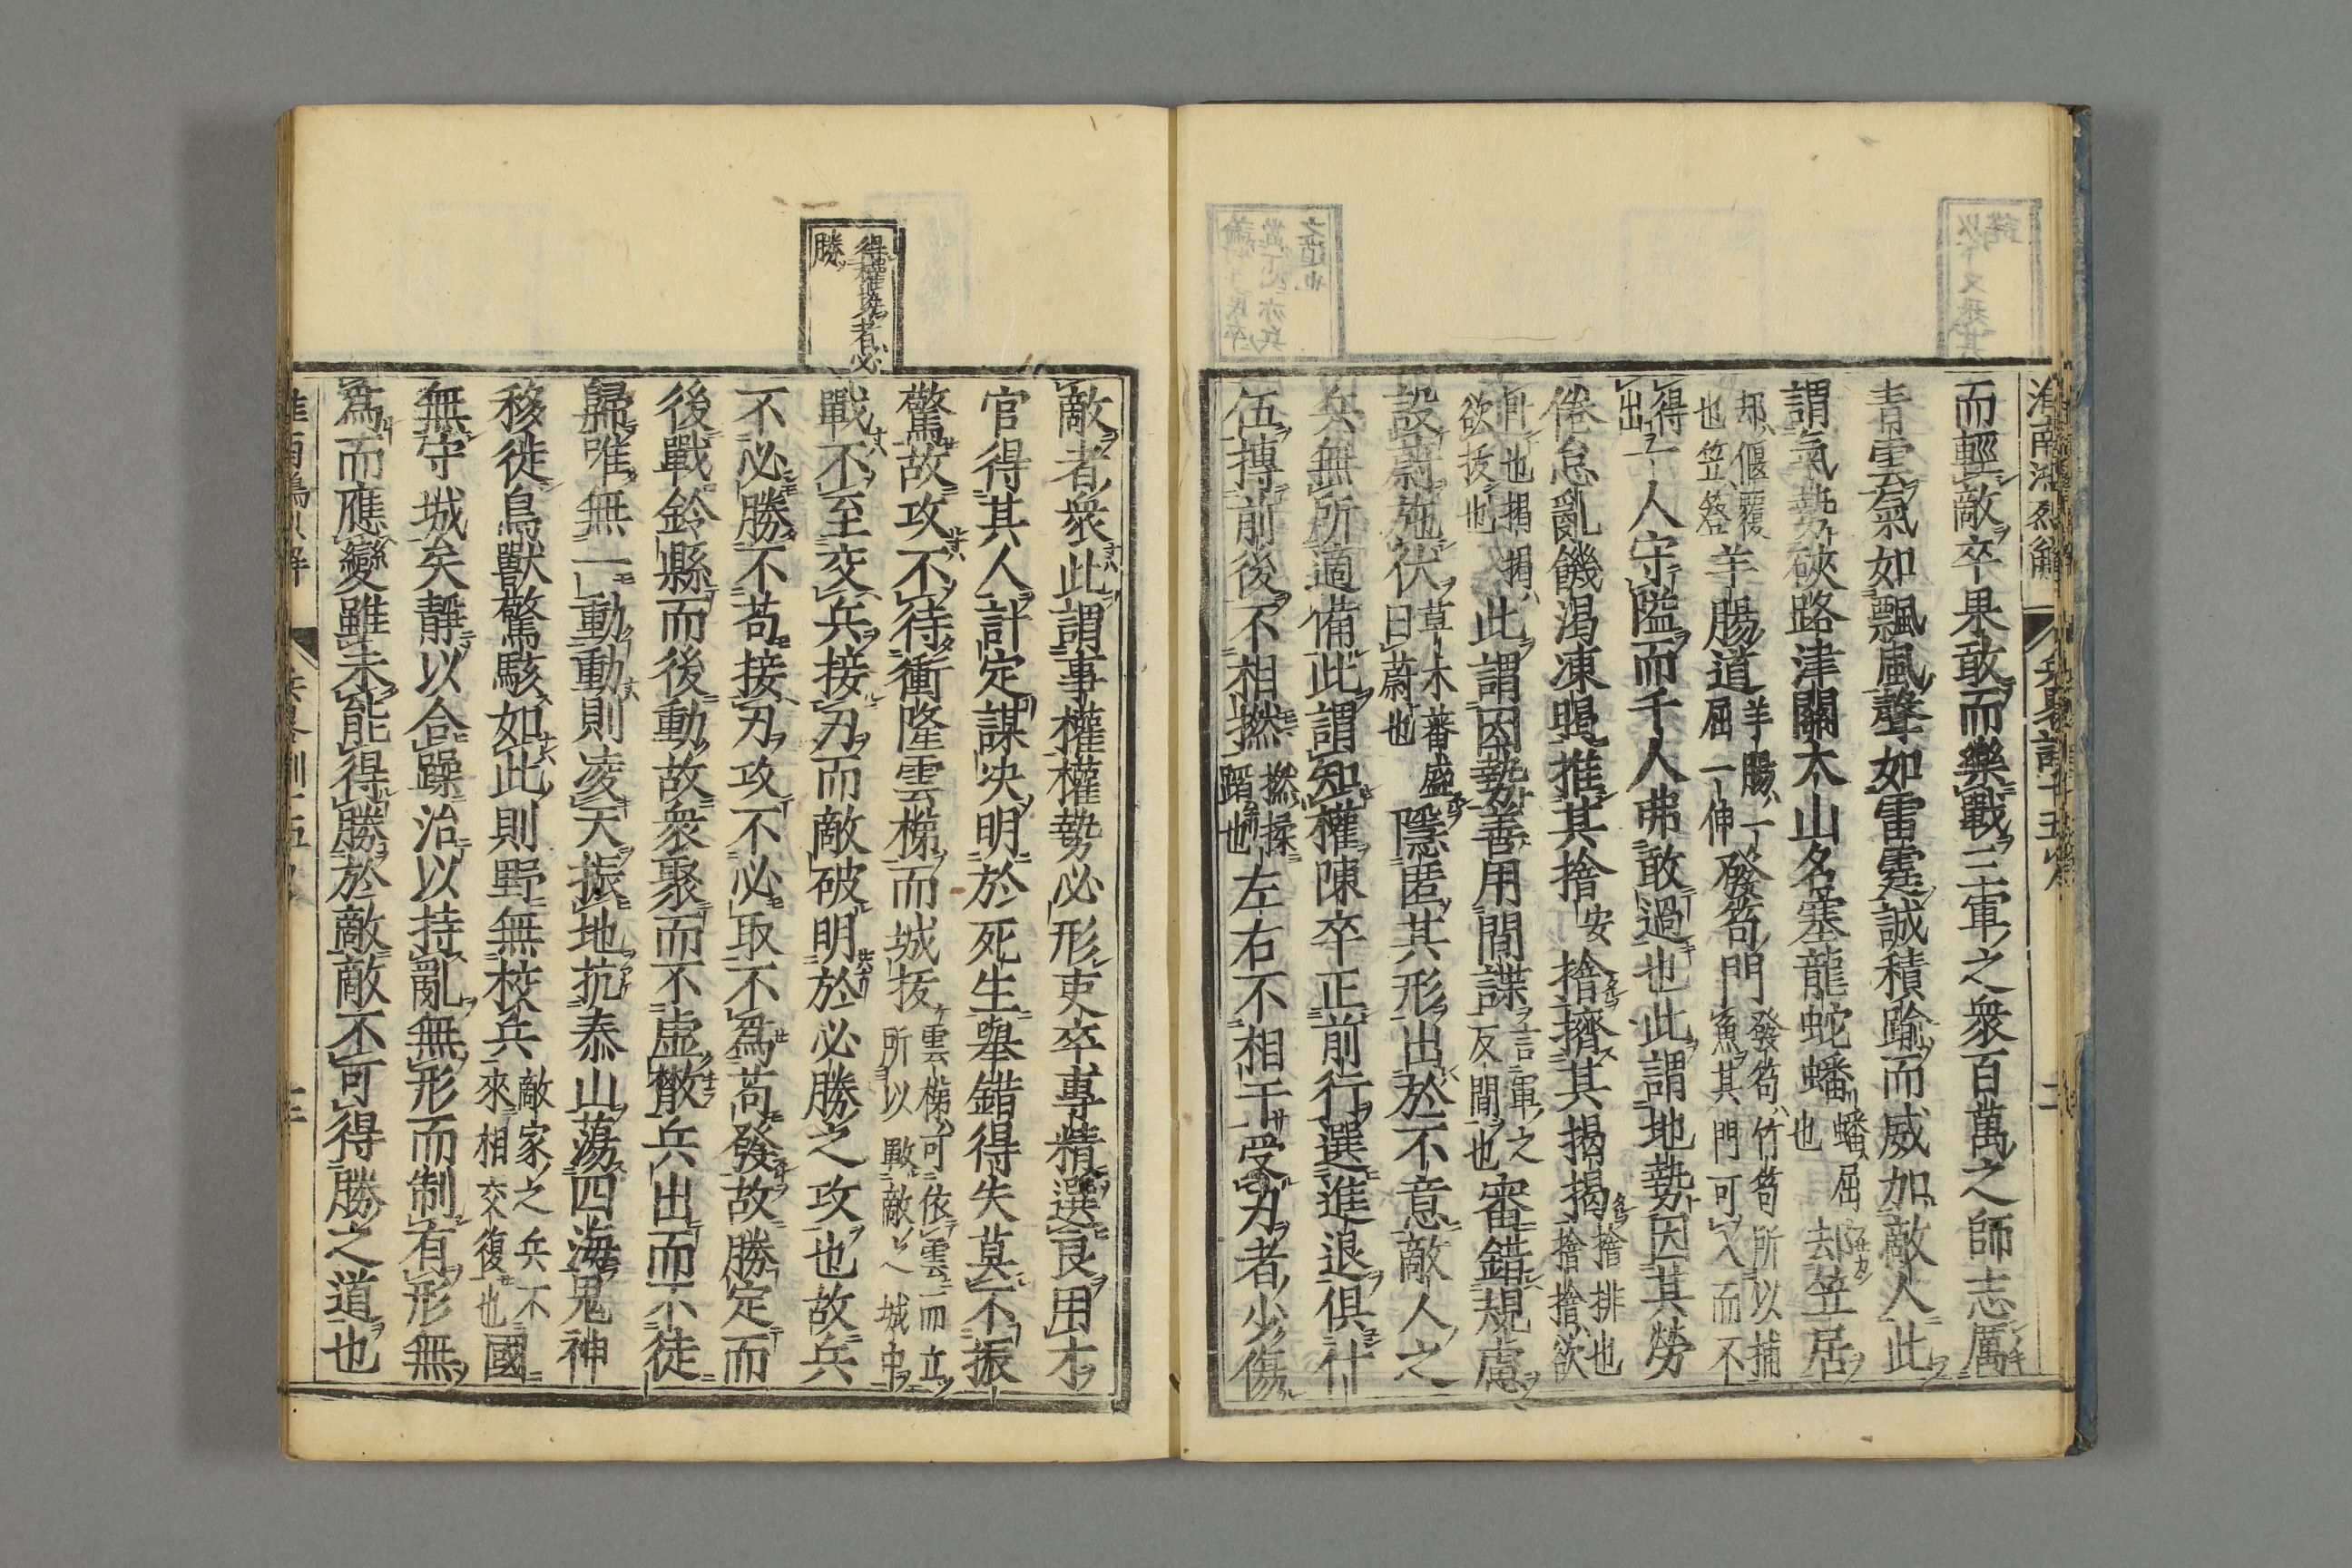 而輕敵卒果敢而樂戰三軍之衆百萬之師志厲
青雲氣如飄風聲如雷霆誠積踰而威加敵人此
謂氣勢硤路津關大山名塞龍蛇蟠蟠屈也却笠居
却偃覆也笠簦羊腸道羊腸一屈一伸發笱門發笱竹笱所以捕魚其門可入而不
得出一人守隘而千人弗敢過也此謂地勢因其勞
倦怠亂饑渴凍暍推其搚安搚擠其揭揭搚排也搚搚欲
拔也此謂因勢善用間諜言軍之反間也審錯規慮
設蔚施伏草木蕃盛曰蔚也隱匿其形出於不意敵人之
兵無所適備此謂知權陳卒正前行選進退俱什
伍搏前後不相撚撚揉蹈也左右不相干受刃者少傷
得權勢者必
勝
敵者衆此謂事權權勢必形吏卒專精選良用才
官得其人計定謀決明於死生舉錯得失莫不振
驚故攻不待衝隆雲梯而城拔雲梯可依雲而立所以瞰敵之城中
戰不至交兵接刃而敵破明於必勝之攻也故兵
不必勝不苟接刃攻不必取不爲苟發故勝定而
後戰鈴縣而後動故衆聚而不虛散兵出而不徒
歸唯無一動動則凌天振地抗泰山蕩四海鬼神
移徙鳥獸驚駭如此則野無校兵敵家之兵不來相交復也國
無守城矣靜以合躁治以持亂無形而制有形無
爲而應變雖未能得勝於敵敵不可得勝之道也